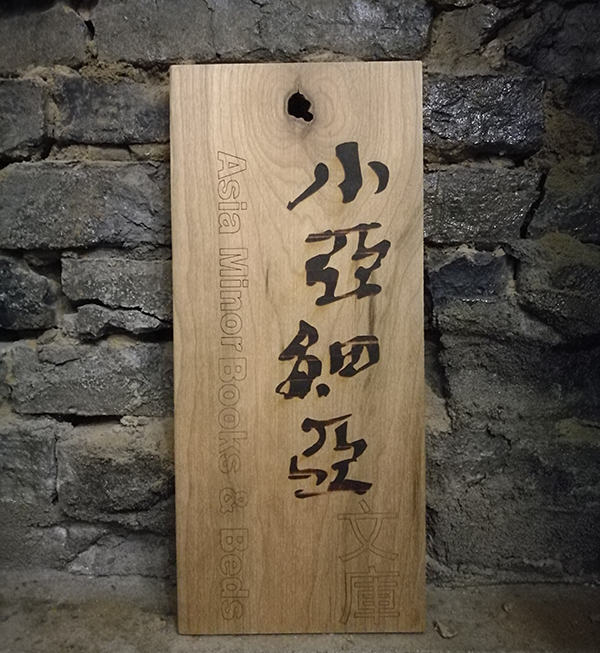 小亞細亞
文庫
Asia Minor Books & Beds